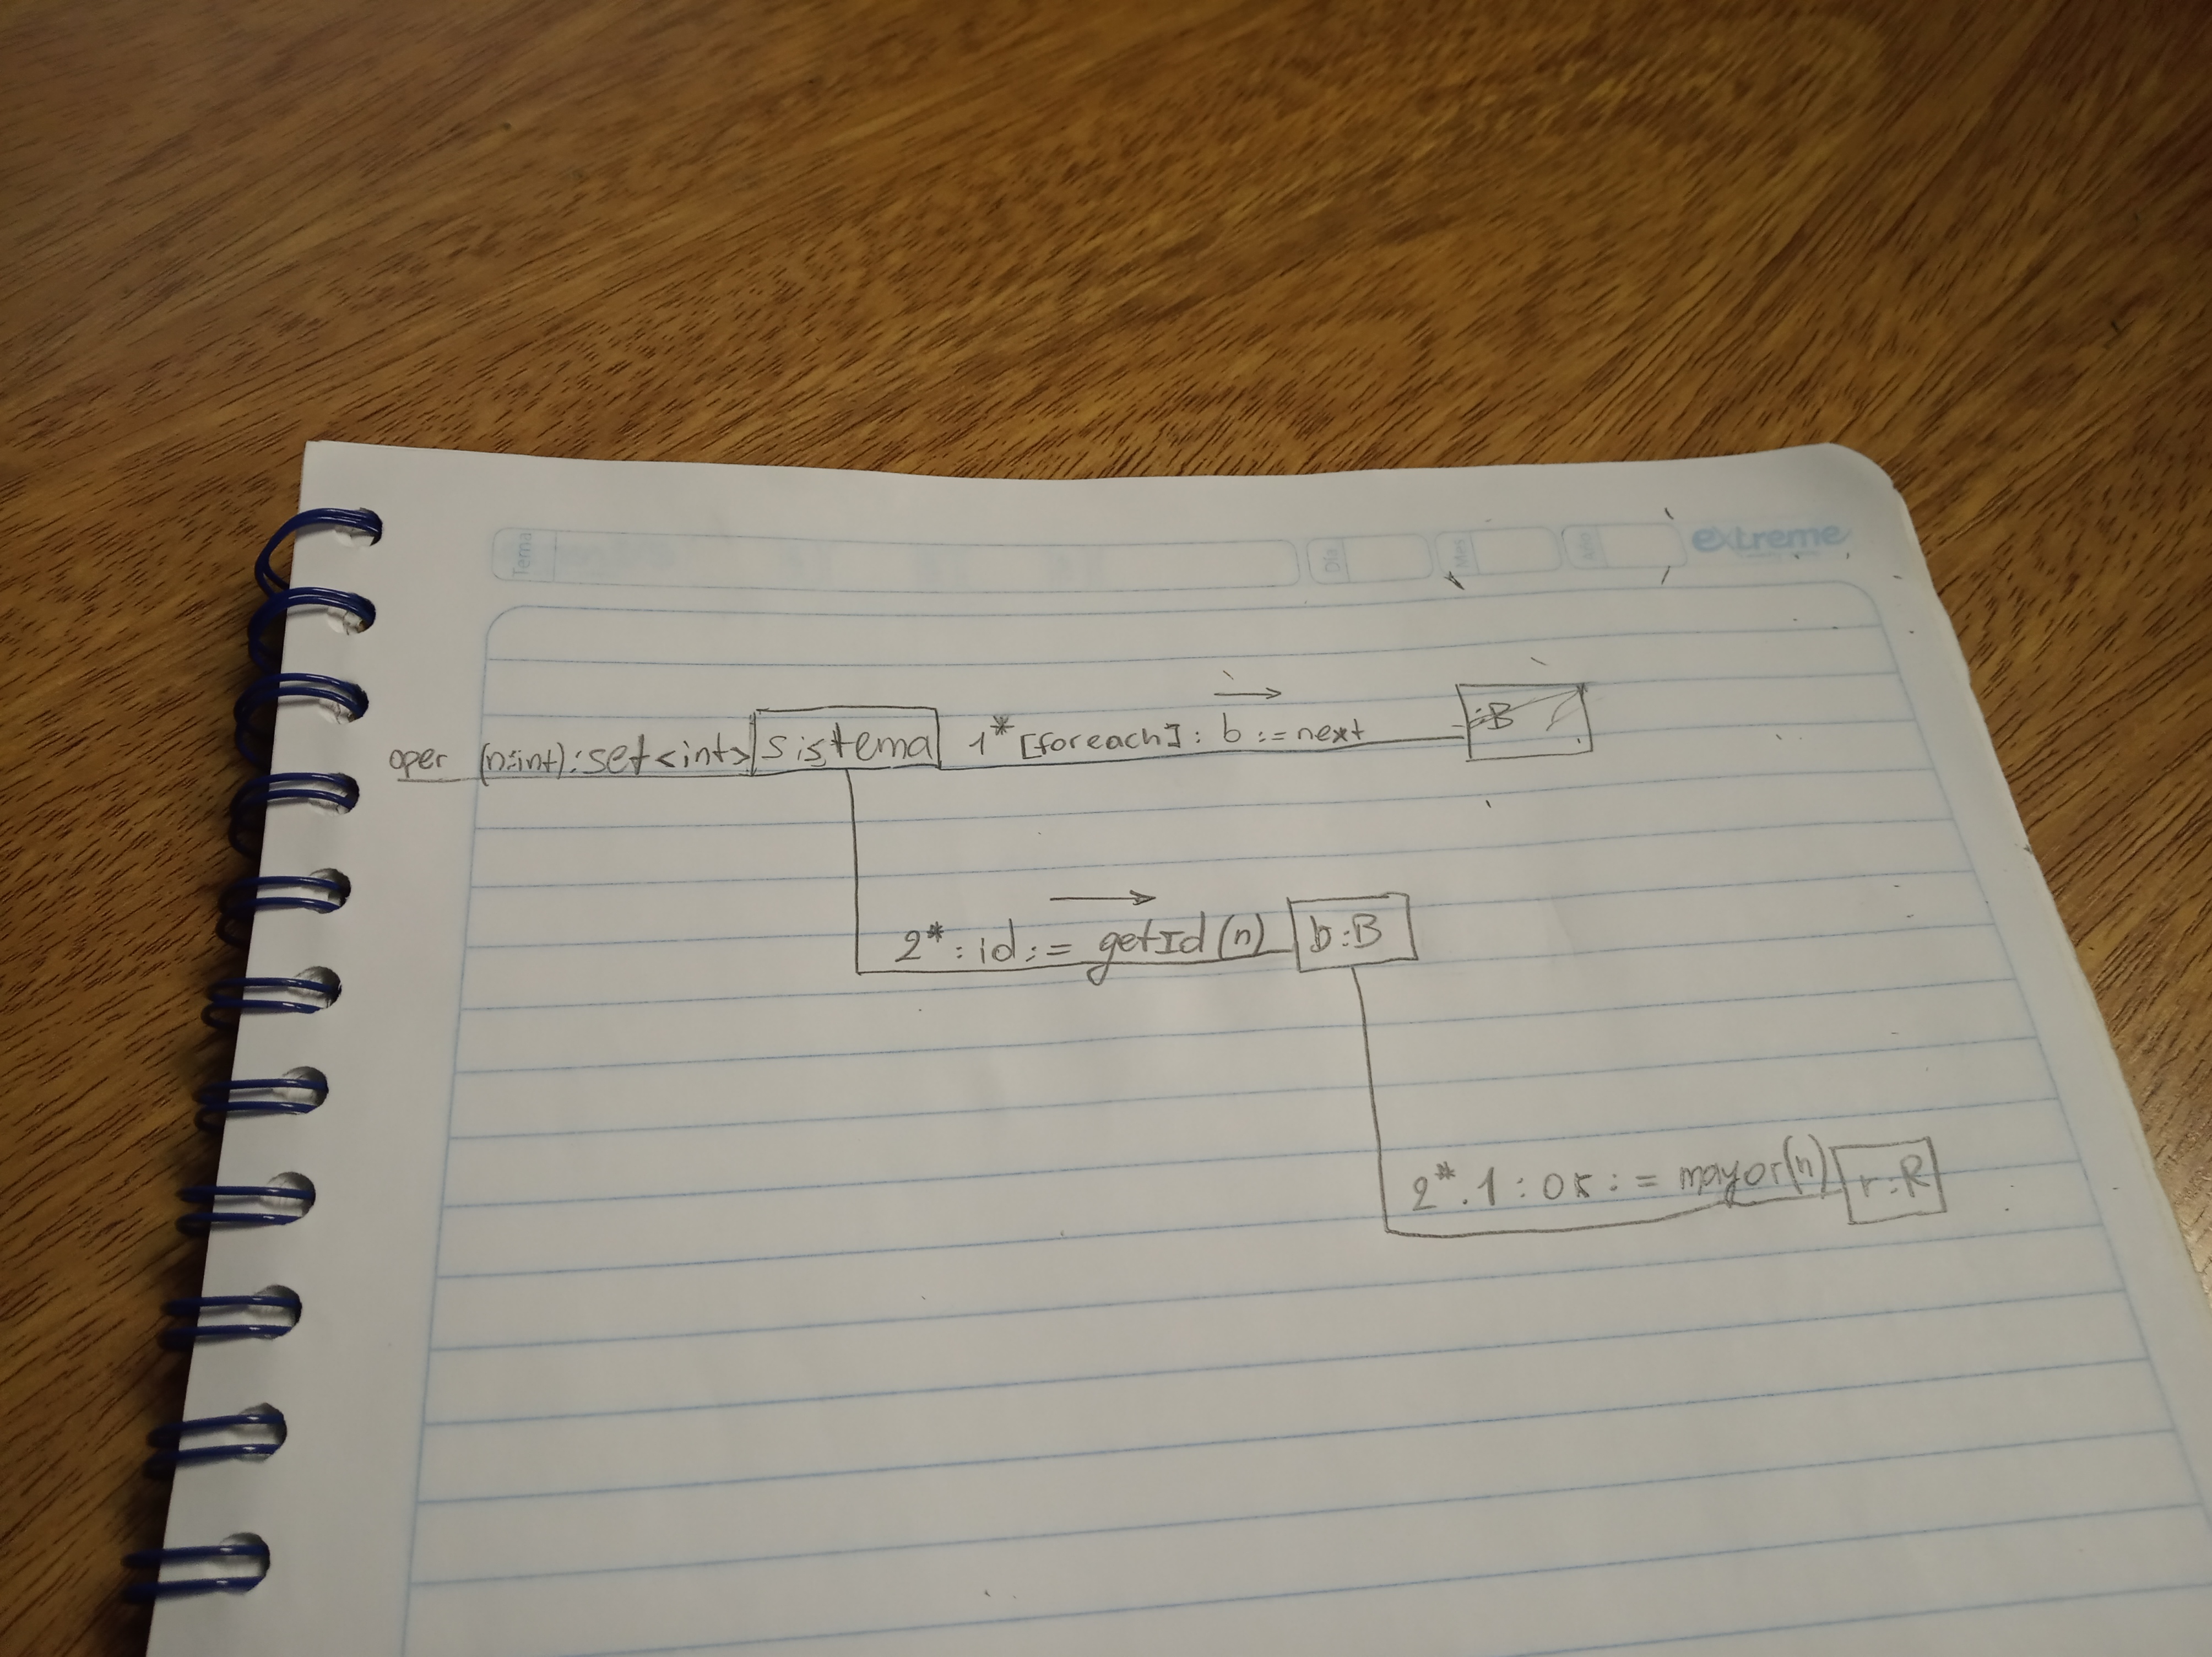 Tema Día Mes Año extreme
oper (n:int):set<int> sistema 1*[foreach]: b:=next :B
2*:id:= getId(n) b:B
2*.1:ok:= mayor(n) r:R